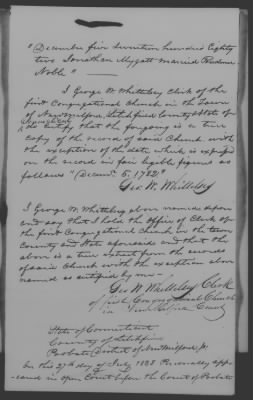 "December five seventeen hundred Eighty
two Jonathan Mygatt married Rodme
Noble" —
I George W. Whittelsey Clerk of the
first Congregational Church in the Town
of New Milford, Litchfield County & State of
Connecticut
do certify that the forgoing is a true
copy of the record of said Church with
the exception of the date which is expressed
on the record in fair legible figures as
follows "Decemr. 5, 1782"
Geo. W. Whittelsey
I George W. Whittelsey above named depose
and say that I hold the Office of Clerk of
the first Congregational Church in the town
County and State aforesaid and that the
above is a true extract from the records
of said Church with the exception above
named as certified by me —
Geo W. Whittelsey Clerk
of first Congregational Church
in New Milford Conn
State of Connecticut
County of Litchfield
Probate District of New Milford, ss
On this 27th day of July 1838 Personally appe-
-ared in open Court before the Court of Probate